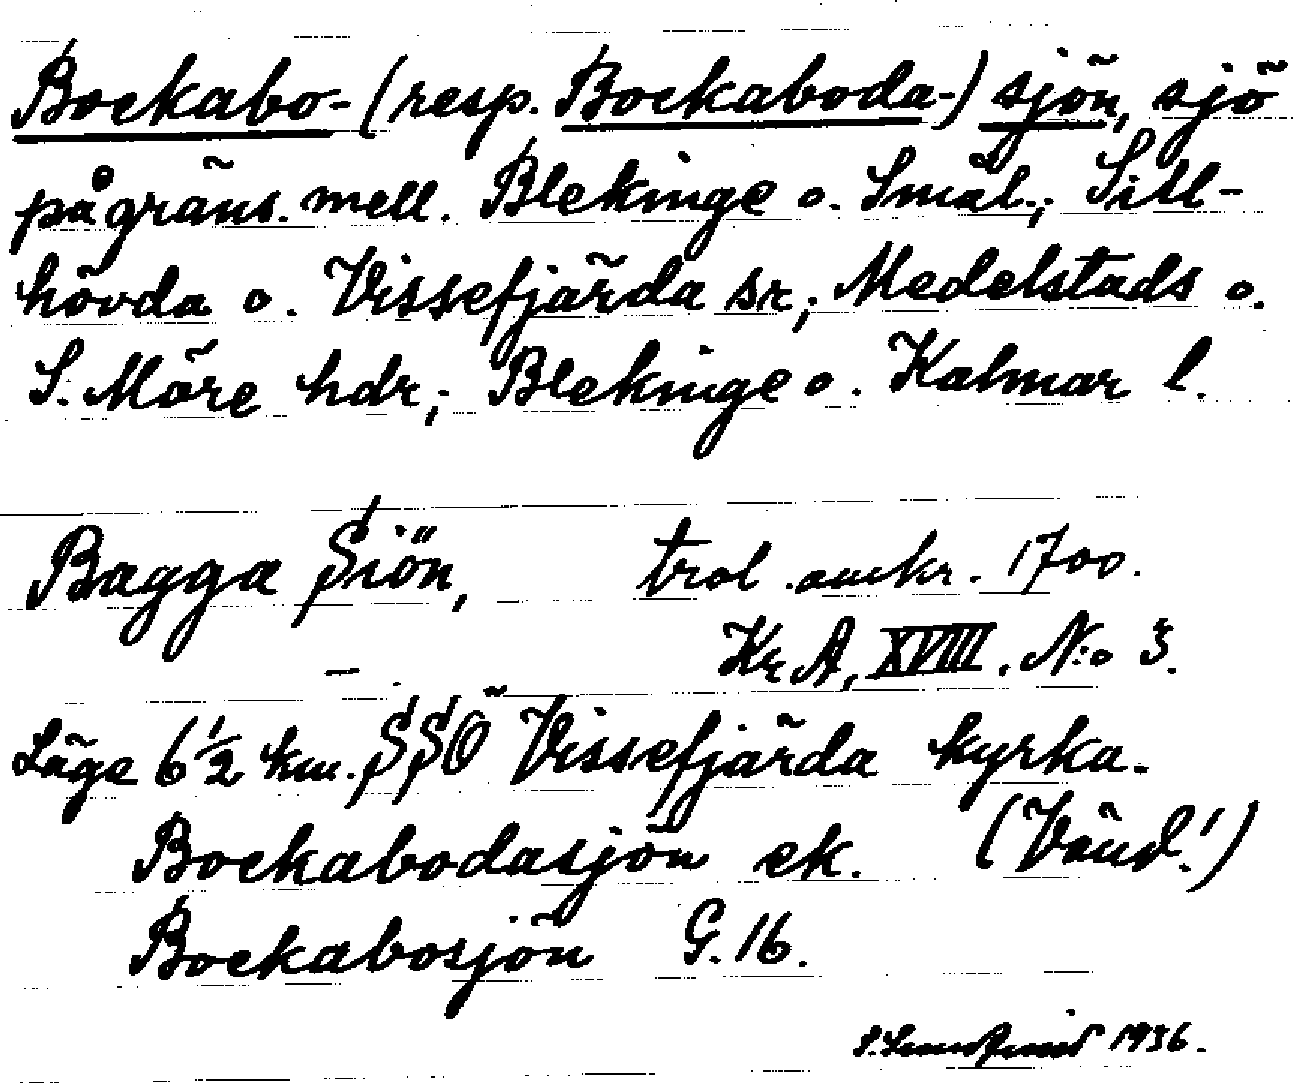 Bockabo- (resp. Bockaboda-) sjön, sjö
på gräns. mell. Blekinge o. Smål.; Sill-
hövda o. Vissefjärda sr; Medelstads o.
S. Möre hdr; Blekinge o. Kalmar l.
Bagga Siön, trol. omkr. 1700.
Kr. A, XVIII. N:o 3.
Läge 6 1/2 km. SSÖ Vissefjärda kyrka.
Bockabodasjön ek. (Vänd!)
Bockabosjön G. 16.
1936.